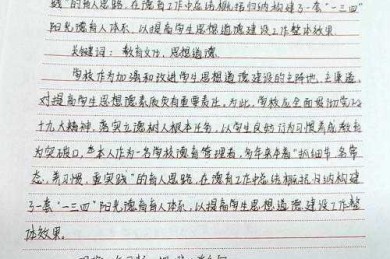 线"的育人思路,在德育工作中总结概括归纳构建了一套"一三四"
阳光德育育人体系,以提高学生思想道德建设工作整体效果。
关键词:教育文化,思想道德
学校作为加强和改进学生思想道德建设的主阵地、主渠道,
对提高学生思想道德素质负有重要责任。为此,学校应全面贯彻党的
十九大精神,落实立德树人根本任务,以学生良好行为习惯养成教育
为突破口,本人作为一名学校德育管理者,多年来本着"抓细节、名常
态、养习惯、重实践"的育人思路,在德育工作中总结概括归纳构建
了一套"一三四"阳光德育育人体系,以提高学生思想道德建设工作整
体效果。